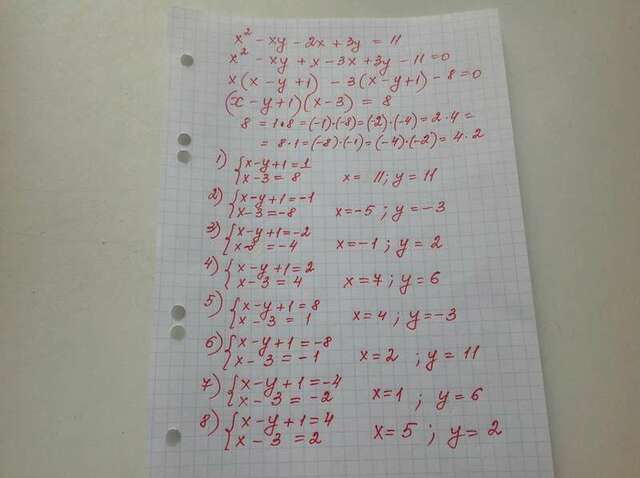 x² - xy - 2x + 3y = 11
x² - xy + x - 3x + 3y - 11 = 0
x(x - y + 1) - 3(x - y + 1) - 8 = 0
(x - y + 1)(x - 3) = 8
8 = 1·8 = (-1)·(-8) = (-2)·(-4) = 2·4 =
= 8·1 = (-8)·(-1) = (-4)·(-2) = 4·2
1) { x - y + 1 = 1
x - 3 = 8 x = 11; y = 11
2) { x - y + 1 = -1
x - 3 = -8 x = -5; y = -3
3) { x - y + 1 = -2
x - 3 = -4 x = -1; y = 2
4) { x - y + 1 = 2
x - 3 = 4 x = 7; y = 6
5) { x - y + 1 = 8
x - 3 = 1 x = 4; y = -3
6) { x - y + 1 = -8
x - 3 = -1 x = 2; y = 11
7) { x - y + 1 = -4
x - 3 = -2 x = 1; y = 6
8) { x - y + 1 = 4
x - 3 = 2 x = 5; y = 2